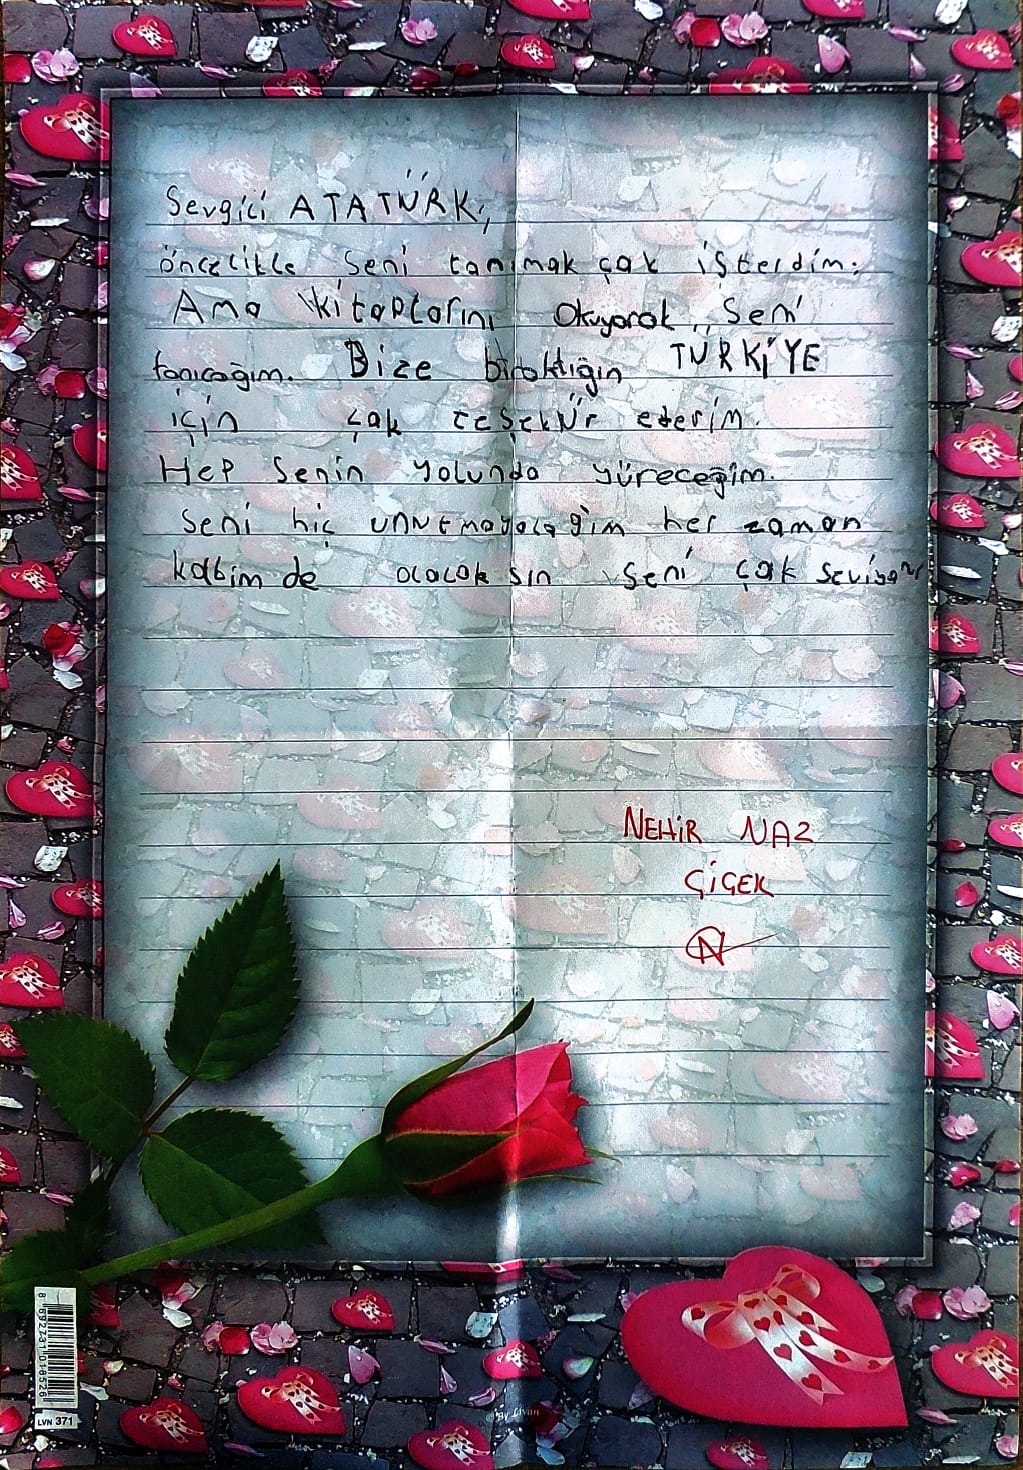 Sevgili ATATÜRK;,
öncelikle seni tanımak çok işterdim;
Ama kitaplarını okuyarak seni
tanıcağım. Bize bıraktığın TÜRKİYE
için çok teşekür ederim.
Hep senin yolunda yüreceğim.
seni hiç unutmayacağım her zaman
kalbim de olacak sın seni çok seviyorum
NEHİR NAZ
ÇİÇEK
N
8 692731 018526
LVN 371
© By Livan